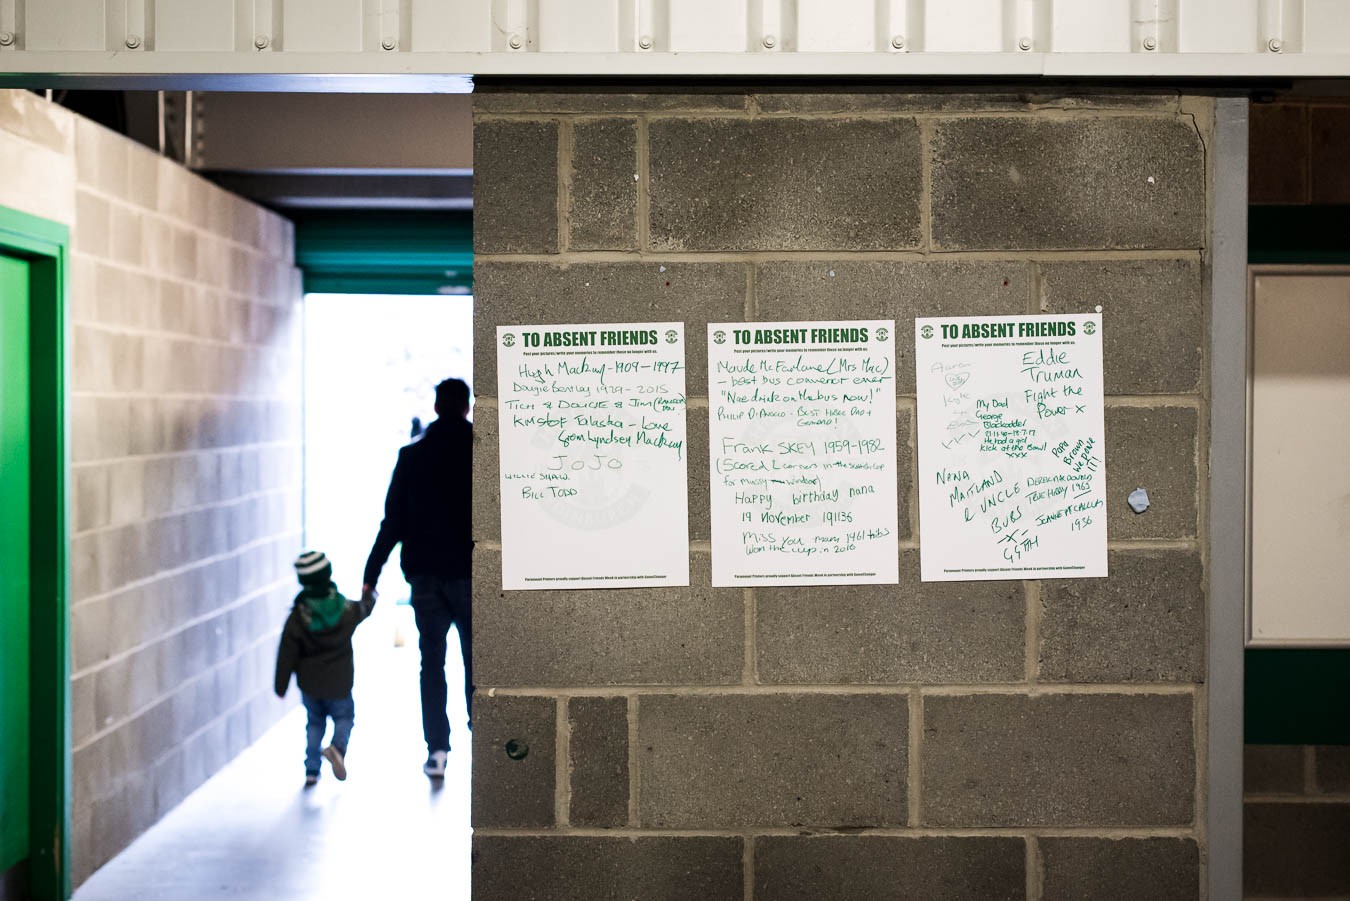 TO ABSENT FRIENDS
Post your pictures/write your memories to remember those no longer with us.
Hugh Mackay - 1909 - 1997
Dougie Bentley 1929 - 2015
TICH & DOUGIE & JIM
- Love
from Lyndsey Mackay
JOJO
WILLIE SHAW
BILL TODD
Paramount Printers proudly support Absent Friends Week in partnership with GameChanger
TO ABSENT FRIENDS
Post your pictures/write your memories to remember those no longer with us.
Maude McFarlane (Mrs Mac)
- best bus convenor ever
"Nae drink on the bus now!"
PHILIP - BEST HIBEE DAD +
GRANDAD!
FRANK SKEY 1959-1982
(Scored corners in the
for
Happy birthday nana
19 November 191136
Miss you mam 1961
won the cup in 2016
Paramount Printers proudly support Absent Friends Week in partnership with GameChanger
TO ABSENT FRIENDS
Post your pictures/write your memories to remember those no longer with us.
Aaron
Kyle
Eddie
Truman
Fight the
Power x
My Dad
George
Blackadder
He had a
Kick of the Bowl
xxx
PAPA
BROWN
WE DONE
IT!
NANA
MAITLAND
& UNCLE
BUBS
-x-
GGTTH
1963
1936
Paramount Printers proudly support Absent Friends Week in partnership with GameChanger